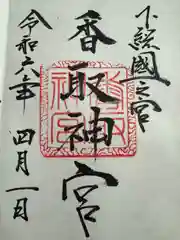 下総國一之宮
香取神宮
令和六年四月一日